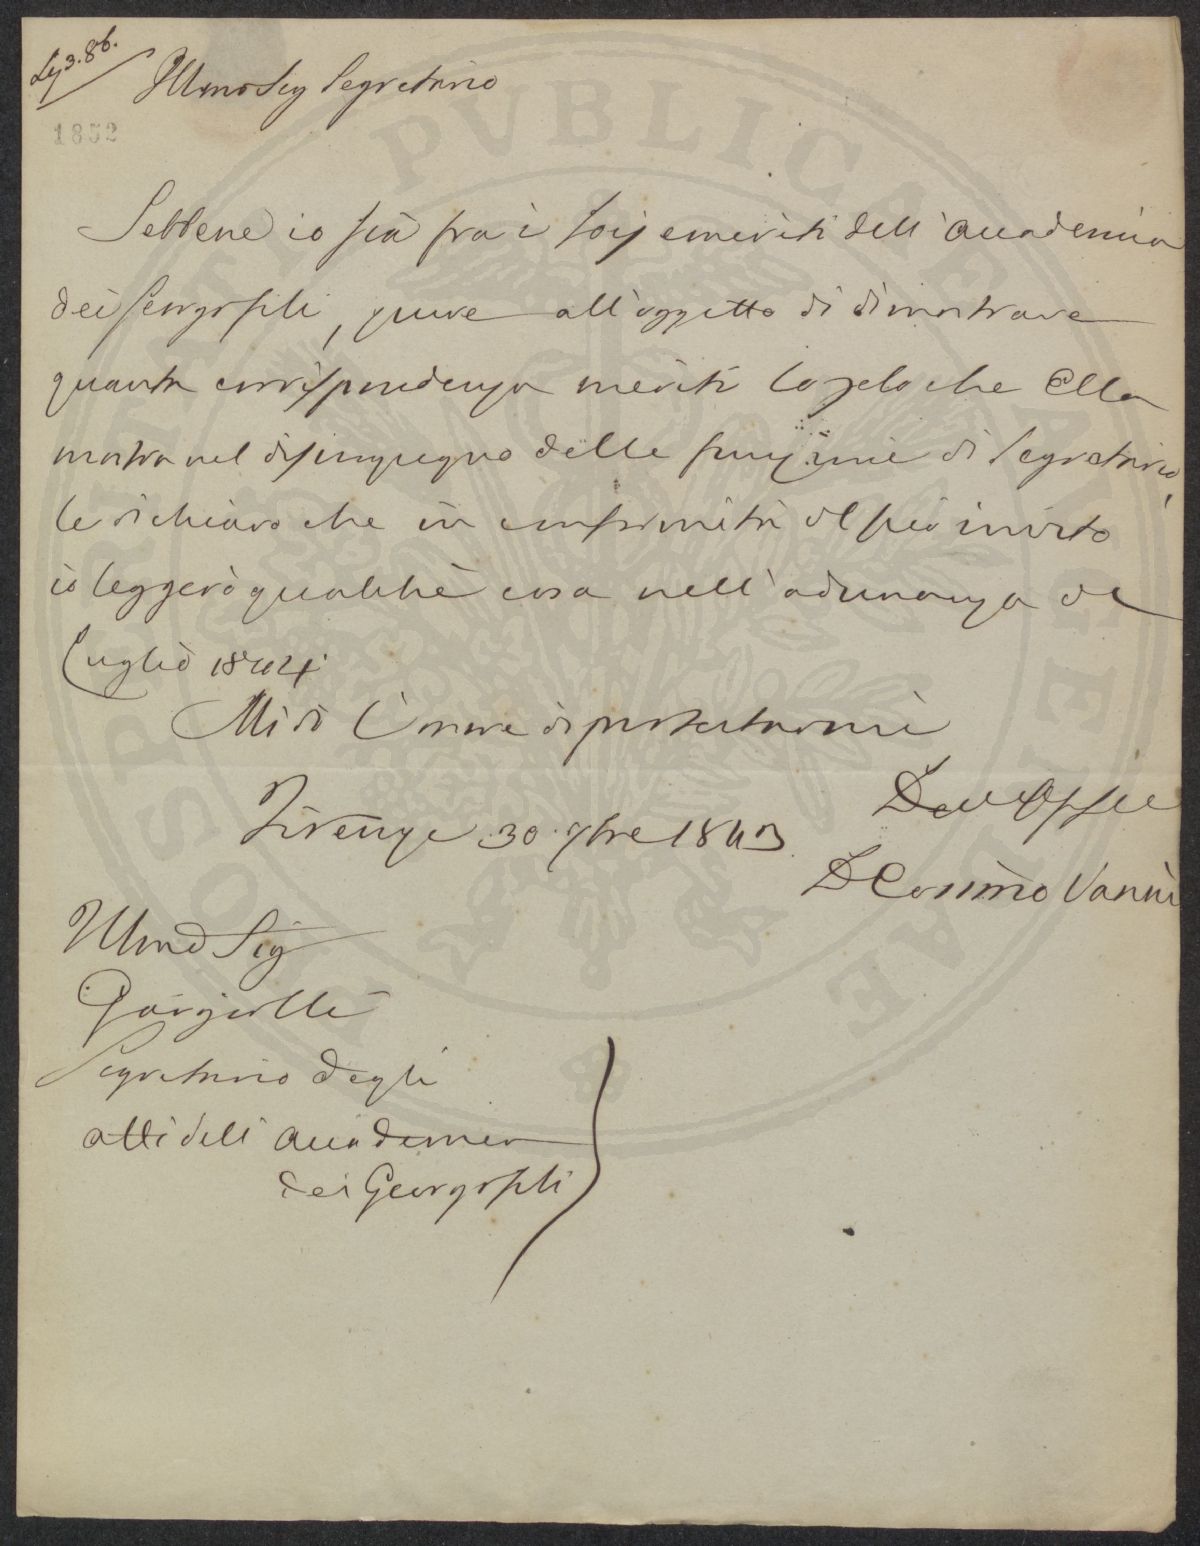 Leg 3. 86.
Illmo Sig Segretario
1852
Sebbene io sia fra i Socj emeriti dell'Accademia
dei Georgofili, pure all'oggetto di dimostrare
quanta corrispondenza meriti lo zelo che Ella
mostra nel disimpegno delle funzioni di Segretario,
le dichiaro che in conformità del suo invito
io leggerò qualche cosa nell'adunanza di
Luglio 1844
Mi dò l'onore di protestarmi
Firenze 30 9bre 1843
D Cosimo Vanni
Illmo Sig
Gargiolli
Segretario degli
atti dell'Accademia
dei Georgofili